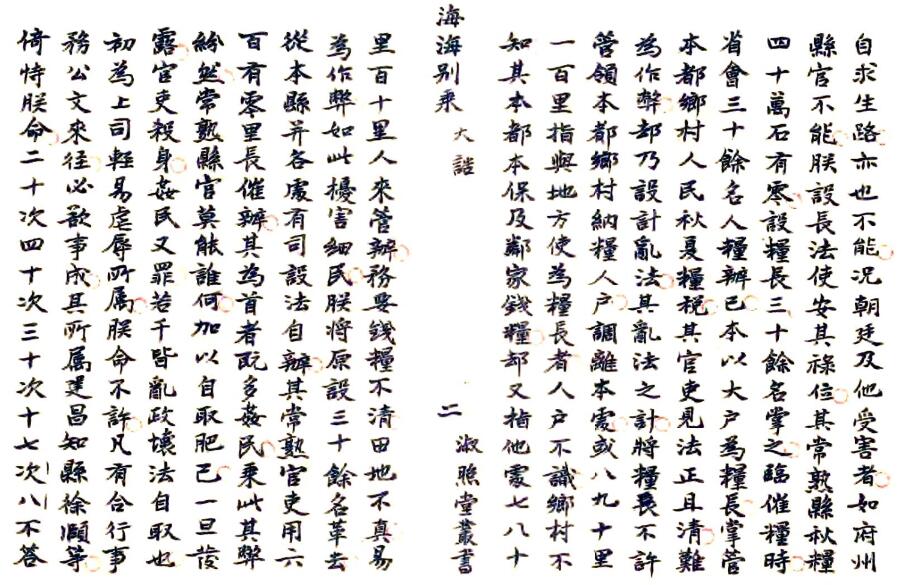 自求生路亦也不能況朝廷及他受害者如府州
縣官不能朕設長法使安其祿位其常熟縣秋糧
四十萬石有零設糧長三十餘名掌之臨催糧時
省會三十餘名人糧辦已本以大戶為糧長掌管
本都鄉村人民秋夏糧稅其官吏見法正且清難
為作弊却乃設計亂法其亂法之計將糧長不許
管領本都鄉村納糧人戶調離本處或八九十里
一百里指與地方使為糧長者人戶不識鄉村不
知其本都本保及鄰家錢糧却又指他處七八十
海海别乘 大誥 二 淑照堂叢書
里百十里人來管辦務要錢糧不清田地不真易
為作弊如此擾害細民朕將原設三十餘名革去
從本縣并各處有司設法自辦其常熟官吏用六
百有零里長催辦其為首者既多姦民乘此其弊
紛然常熟縣官莫能誰何加以自取肥己一旦發
露官吏殺身姦民又罪若干皆亂政壞法自取也
初為上司輕易虐辱所属朕命不許凡有合行事
務公文來徃必欲事成其所属建昌知縣徐頤等
倚恃朕命二十次四十次三十次十七次八不答